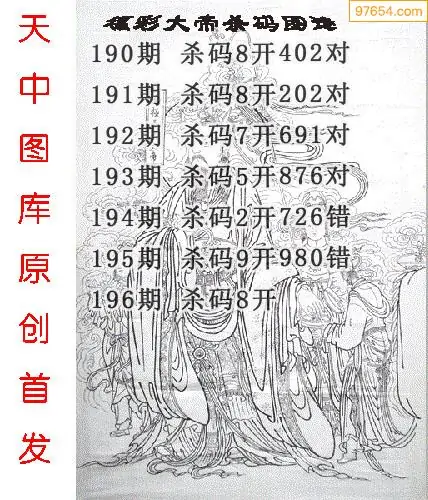 97654.com
福彩大帝杀码图谜
190期 杀码8开402对
191期 杀码8开202对
192期 杀码7开691对
193期 杀码5开876对
194期 杀码2开726错
195期 杀码9开980错
196期 杀码8开
天中图库原创首发